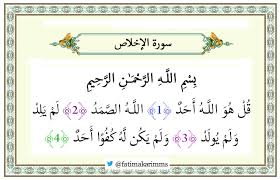 سورة الإخلاص
بِسْمِ اللَّهِ الرَّحْمَٰنِ الرَّحِيمِ
قُلْ هُوَ اللَّهُ أَحَدٌ ﴿1﴾ اللَّهُ الصَّمَدُ ﴿2﴾ لَمْ يَلِدْ
وَلَمْ يُولَدْ ﴿3﴾ وَلَمْ يَكُن لَّهُ كُفُوًا أَحَدٌ ﴿4﴾
@fatimakerimms